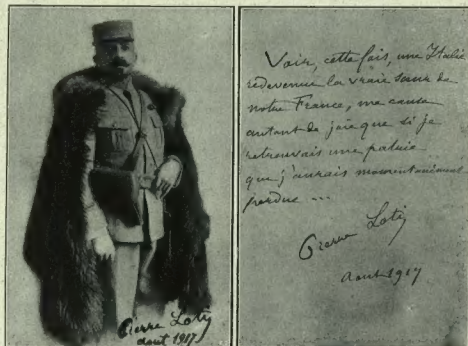 Pierre Loti
août 1917
Voir, cette fois, une Italie
redevenue la vraie sœur de
notre France, me cause
autant de joie que si je
retrouvais une patrie
que j'aurais momentanément
perdue ...
Pierre Loti
Août 1917